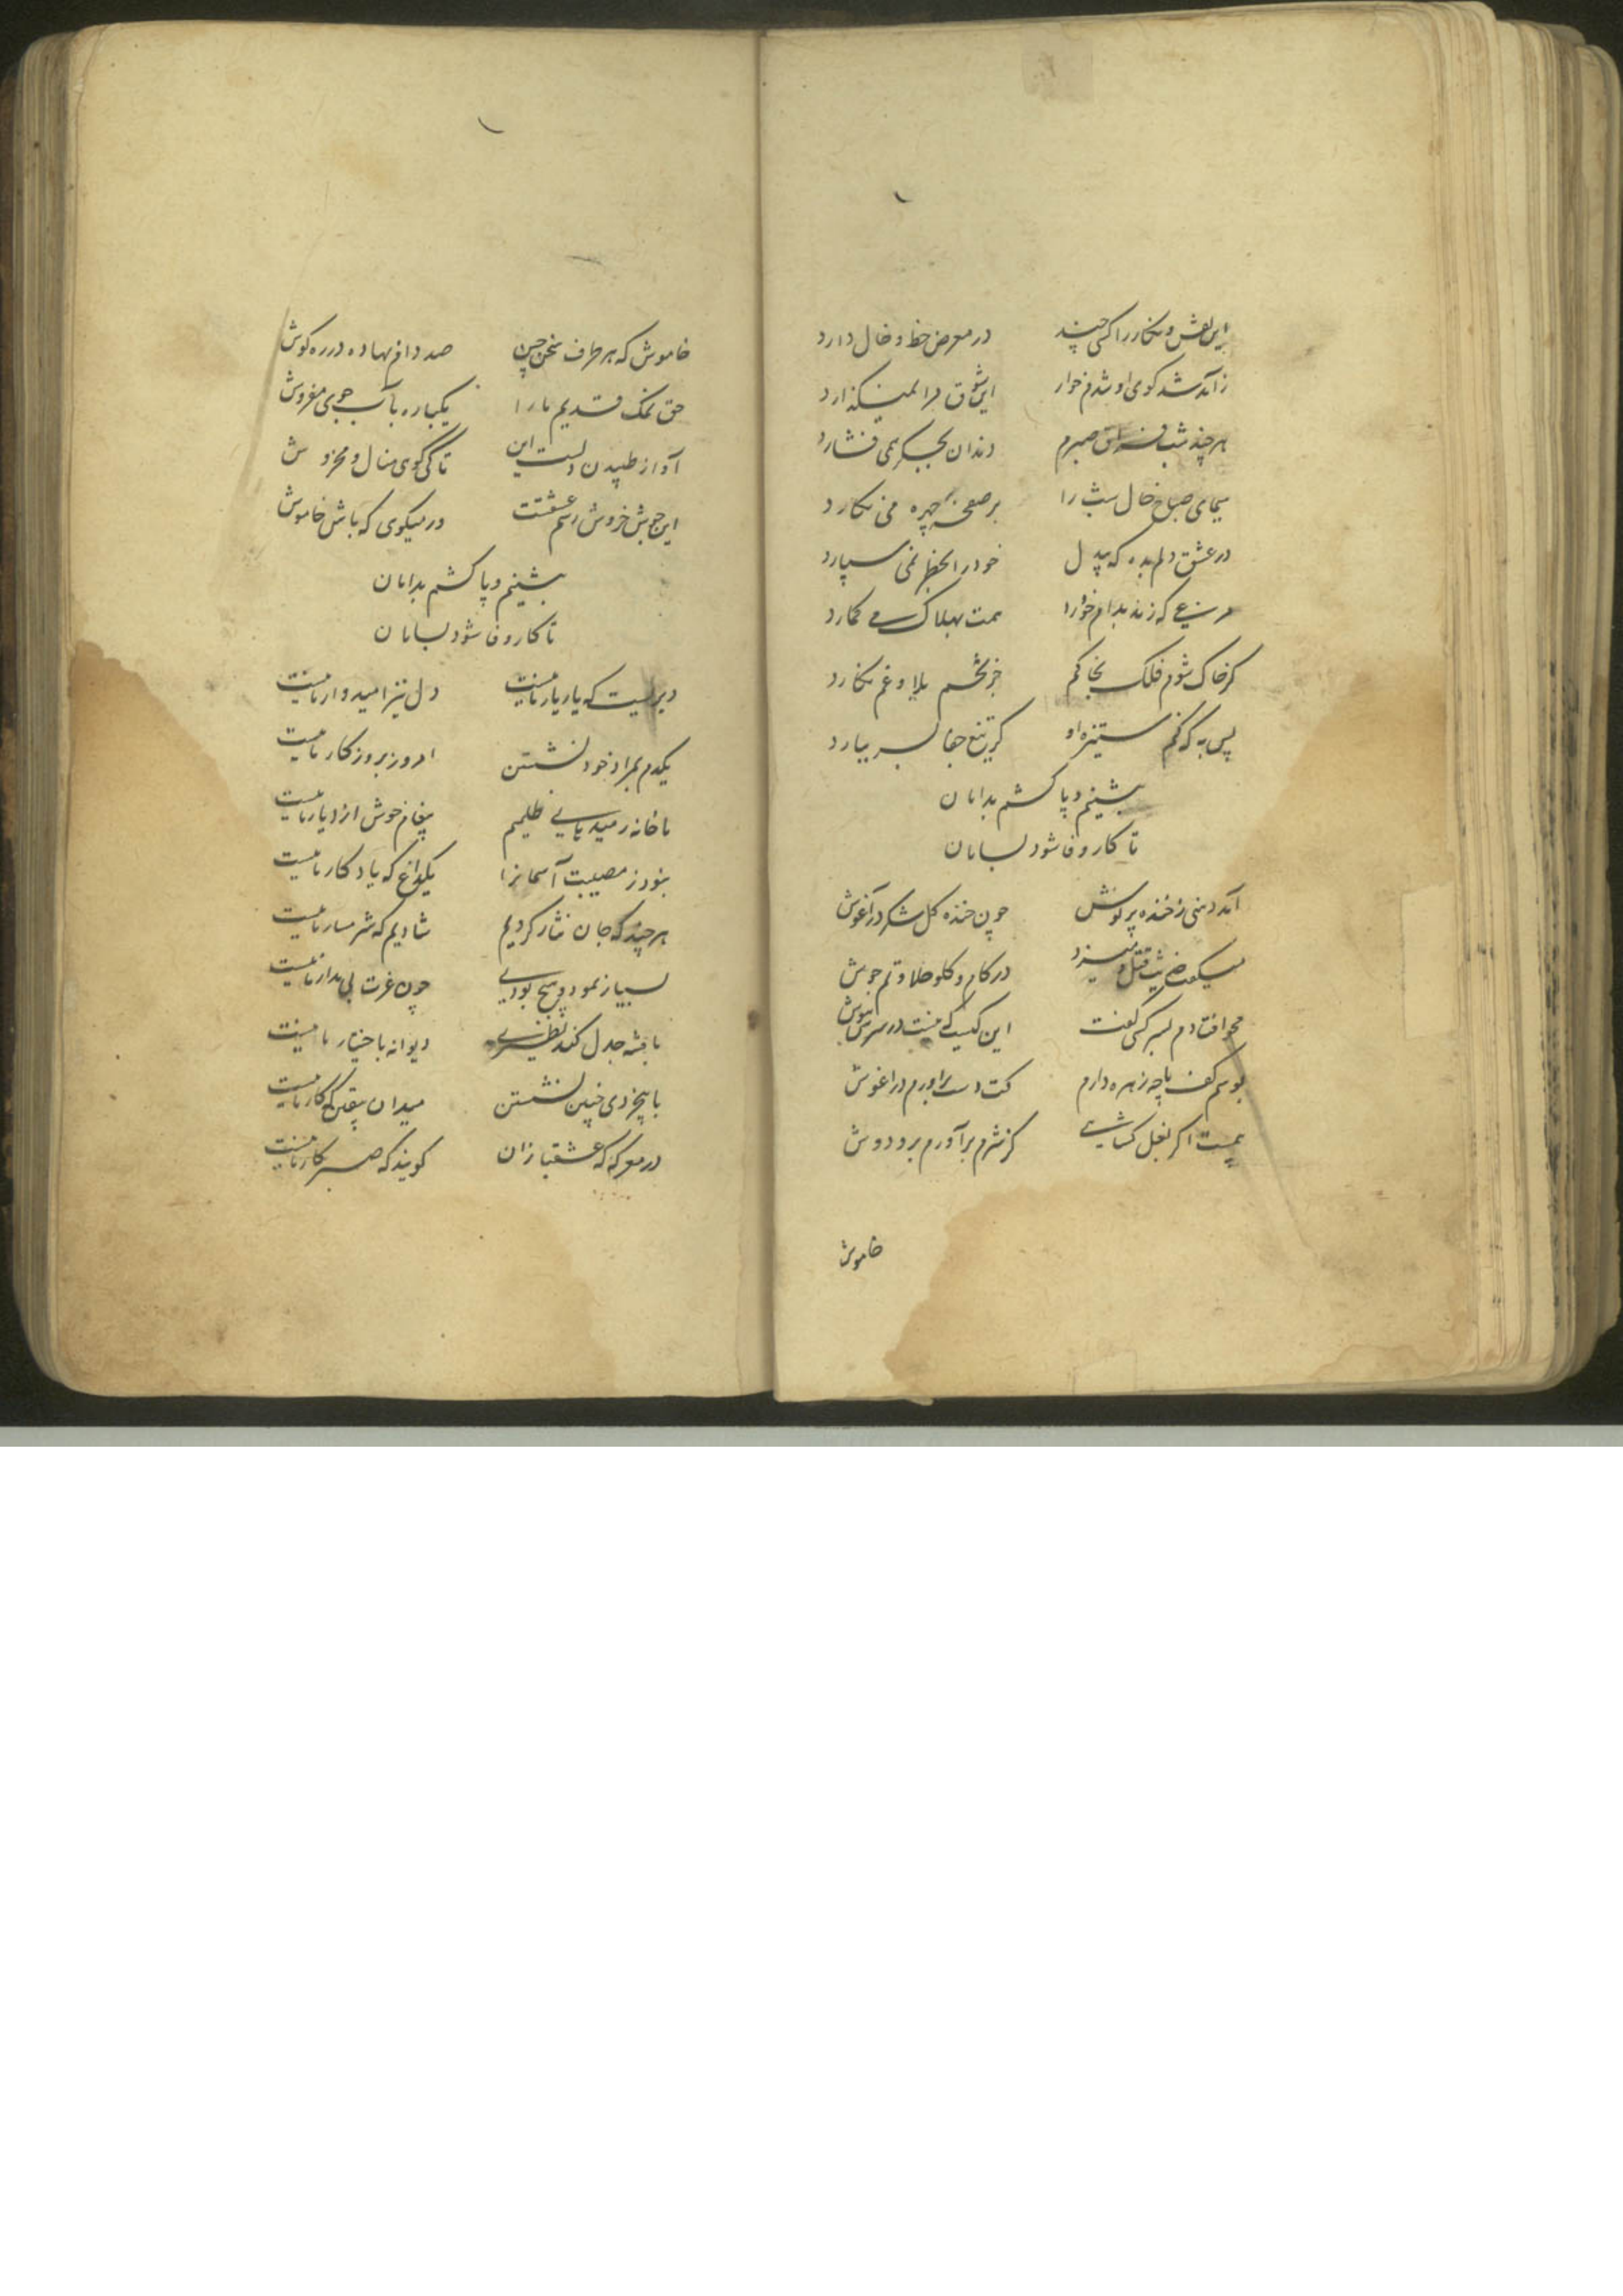 این نقش و نگار را کسی چند در معرض خط و خال دارد
ز آمد شد کوی او شدم خوار این شوق مرا نمیگذارد
هر چند شب فراق صبرم دندان بجگر همی فشارد
سیمای صباح خال شب را بر صفحه چهره می نگارد
در عشق دلم بده که بیدل خود را بخطر نمی سپارد
مرغی که زند بدام خود را همت بهلاک می گمارد
گر خاک شوم فلک بخاکم جز تخم بلا و غم نکارد
پس به که کنم ستیزه او گر تیغ جفا بسر ببارد
بنشینم و پا کشم بدامان
تا کار وفا شود بسامان
آمد دهنی ز خنده پر نوش چون خنده گل شکر در آغوش
در کام و گلو حلاوتم جوش
محو افتادم بسر کسی گفت این کیست که نیست در سرش هوش
بوسم کف پا چه زهره دارم کت دست برآورم در آغوش
همت اگر بغل گشایی کز شرم برآورم بر و دوش
خاموش
خاموش که هر طرف سخن چین صد دام نهاده در ره گوش
حق نمک قدیم ما را یکباره بآب جوی مفروش
آواز طپیدن دلست این تا کی گوی منال و مخروش
این جوش و خروش رسم عشقت در میگوی که باش خاموش
بنشینم و پا کشم بدامان
تا کار وفا شود بسامان
دیریست که یار یار ما نیست دل نیز امیدوار ما نیست
یکدم بمراد خود نشستن امروز بروزگار ما نیست
ما خانه رمیدهای ظلیم پیغام خوش از دیار ما نیست
نبود ز مصیبت آسمانرا یکداغ که یادگار ما نیست
هر چند که جان نثار کردیم شادیم که شرمسار ما نیست
بسیار نمود و هیچ بودیم چون عزت بی مدار ما نیست
با پشه جدل کند نظیری دیوانه باختیار ما نیست
با بیخردی چنین نشستن میدان یقین که کار ما نیست
در معرکه که عشقبازان گویند که صبر کار ما نیست